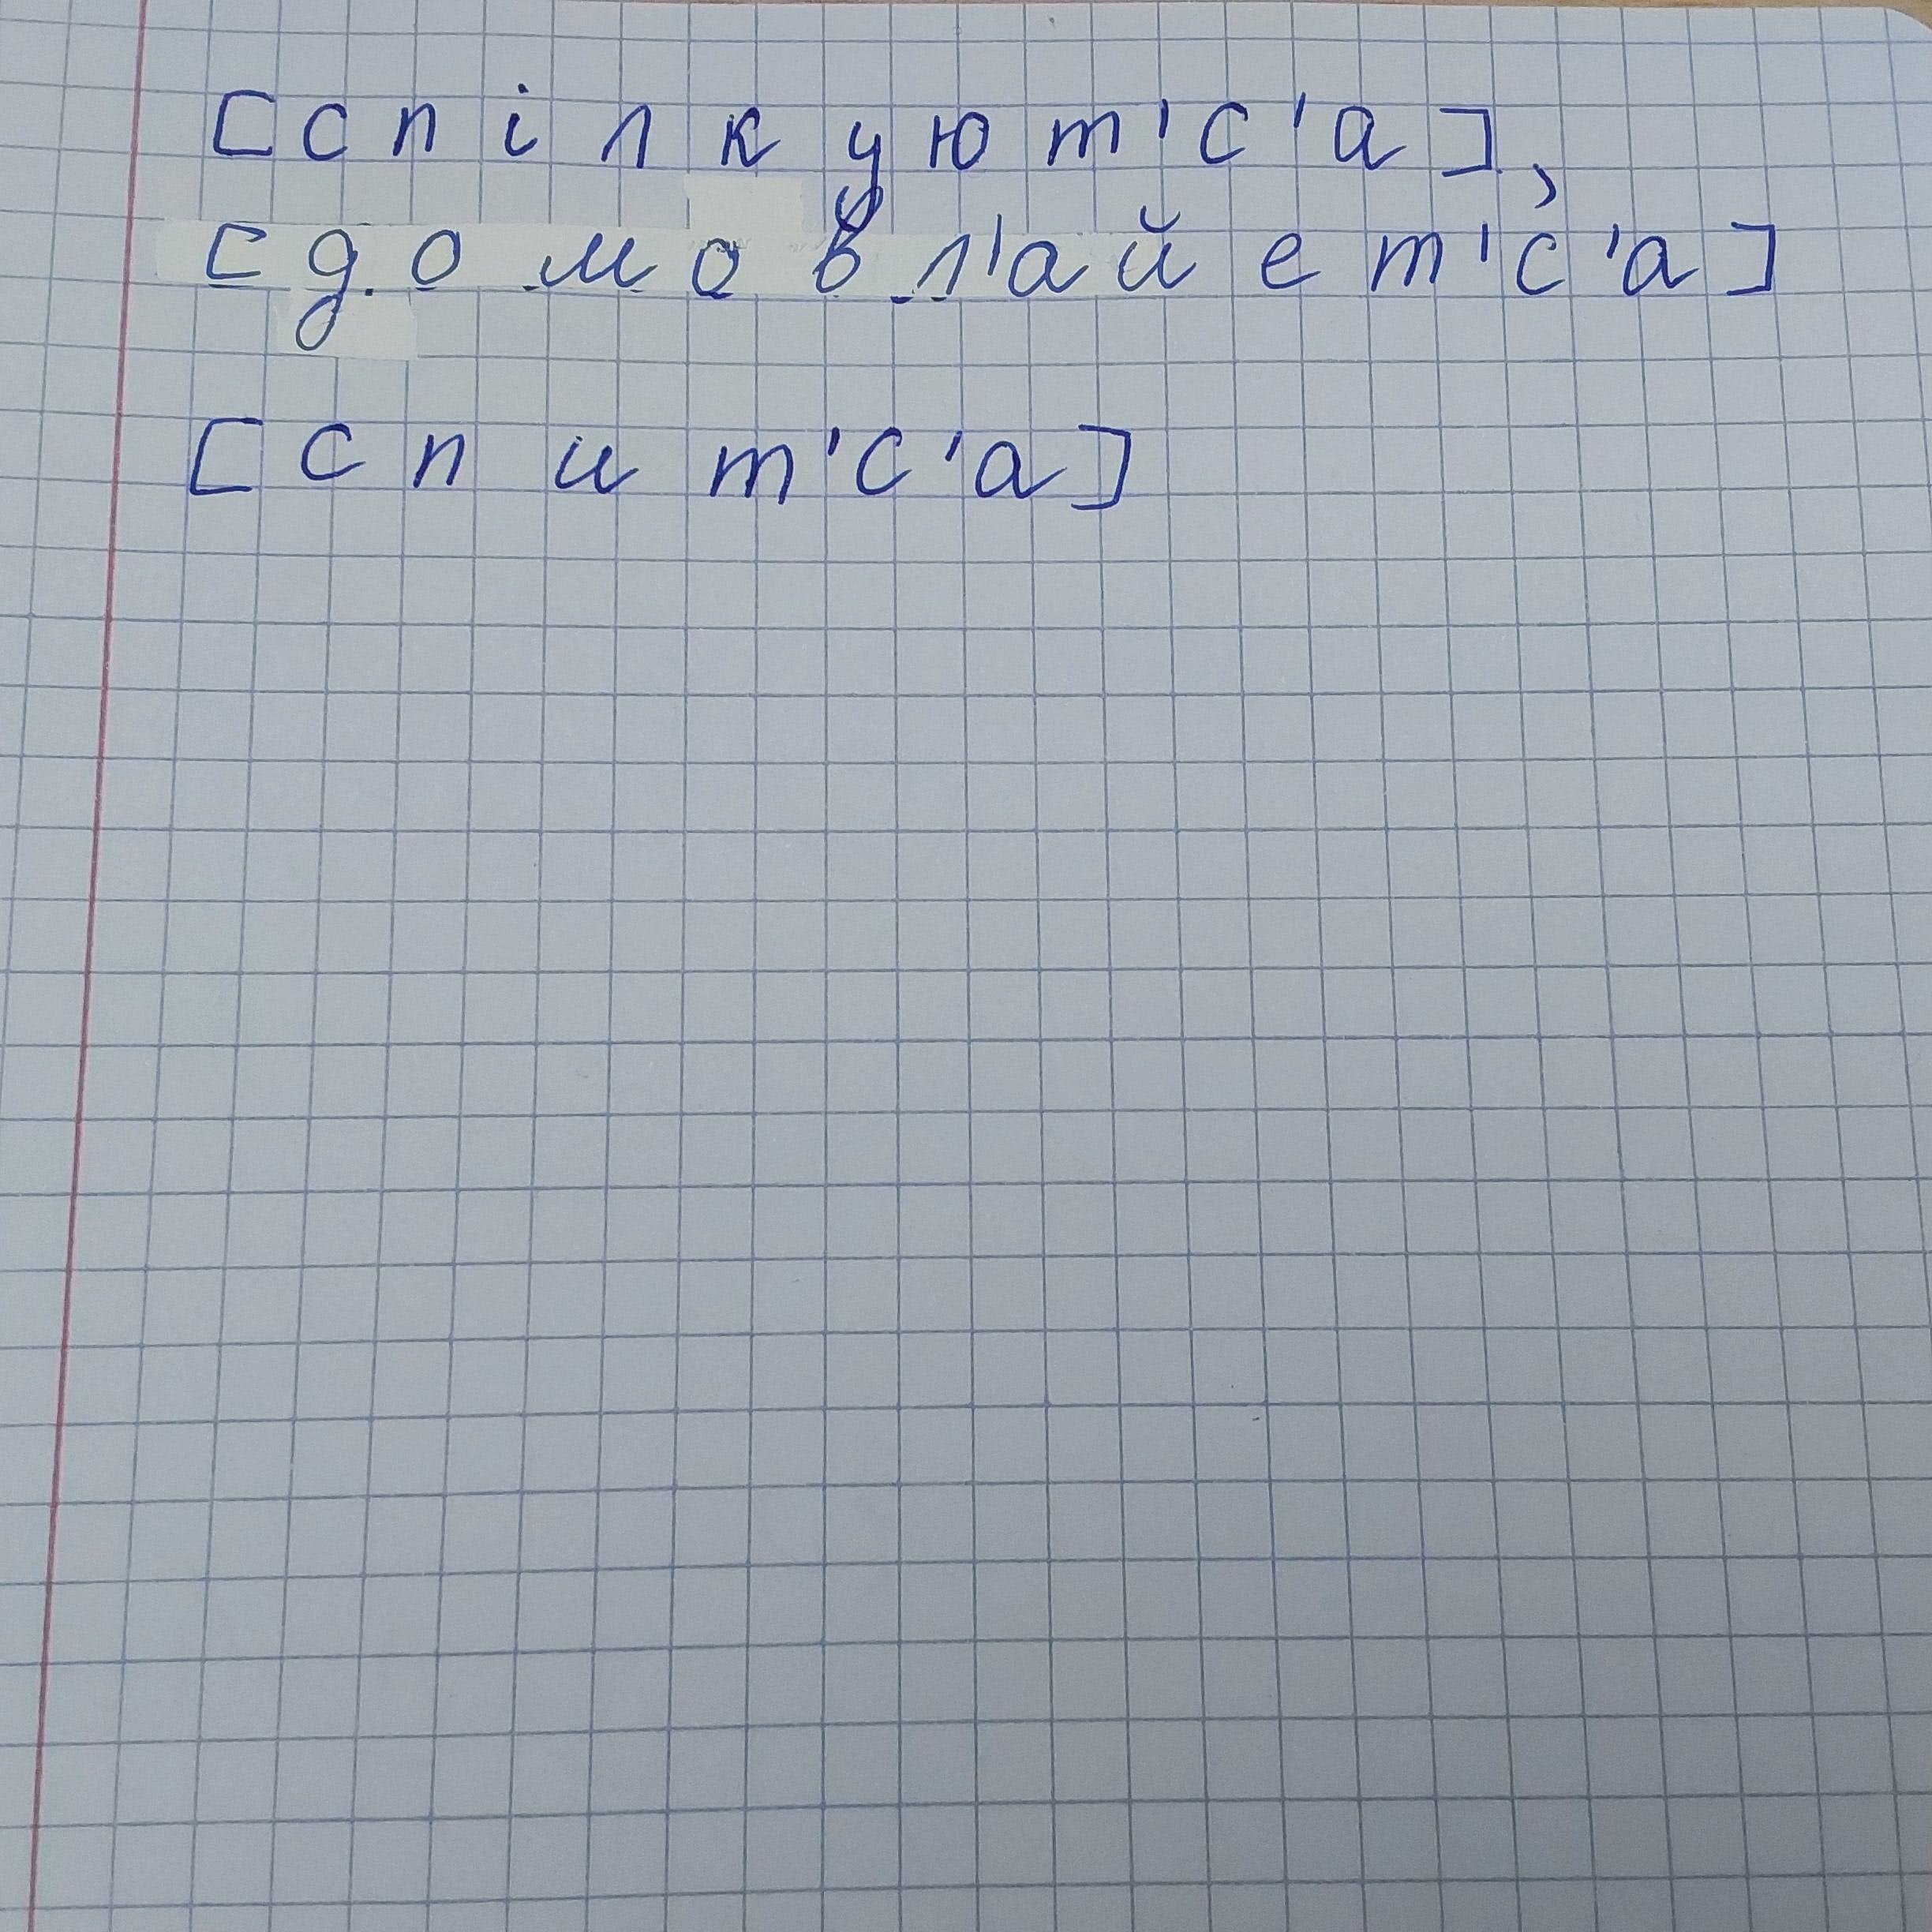 [спілкуют'с'а],
[домовл'айет'с'а]
[спит'с'а]